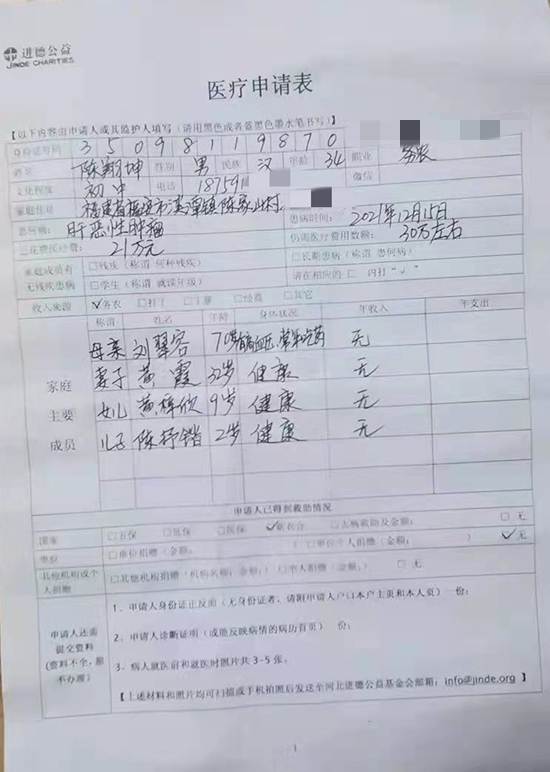 进德公益
JINDE CHARITIES
医疗申请表
【以下内容由申请人或其监护人填写（请用黑色或者蓝黑色墨水笔书写）】
身份证号码 35098119870
姓名 陈翔坤 性别 男 民族 汉 年龄 34 职业 务农
文化程度 初中 电话 187591 微信
家庭住址 福建省福安市溪潭镇陈家山村
患何病： 肝恶性肿瘤 患病时间： 2021年12月15日
已花医疗费： 21万元 仍需医疗费用数额： 30万左右
家庭成员有无残疾患病 □残疾（称谓 何种残疾） □长期患病（称谓 患何病）
□学生（称谓 就读年级） 请在相应的 □ 内打“√”
收入来源 √务农 □打工 □干部 □经商 □其它
称谓 姓名 年龄 身体状况 年收入 年支出
母亲 刘翠容 70岁 高血压，常年吃药 无
家庭 妻子 黄霞 32岁 健康 无
主要 女儿 黄梓欣 9岁 健康 无
成员 儿子 陈梓锴 2岁 健康 无
申请人已得到救助情况
国家 □五保 □低保 □医保 √新农合 □大病救助及金额： □无
单位 □单位捐赠（金额： ） □单位个人捐赠（金额： ） √无
其他机构或个人捐赠 □其他机构捐赠（机构名称；金额：） □个人捐赠（金额： ） □无
申请人还需提交资料（资料不全，恕不办理）
1、申请人身份证正反面（无身份证者，请附申请人户口本户主页和本人页） 份；
2、申请人诊断证明（或能反映病情的病历首页） 份；
3、病人就医前和就医时照片共3-5张。
【上述材料和照片均可扫描或手机拍照后发送至河北进德公益基金会邮箱：info@jinde.org】
1